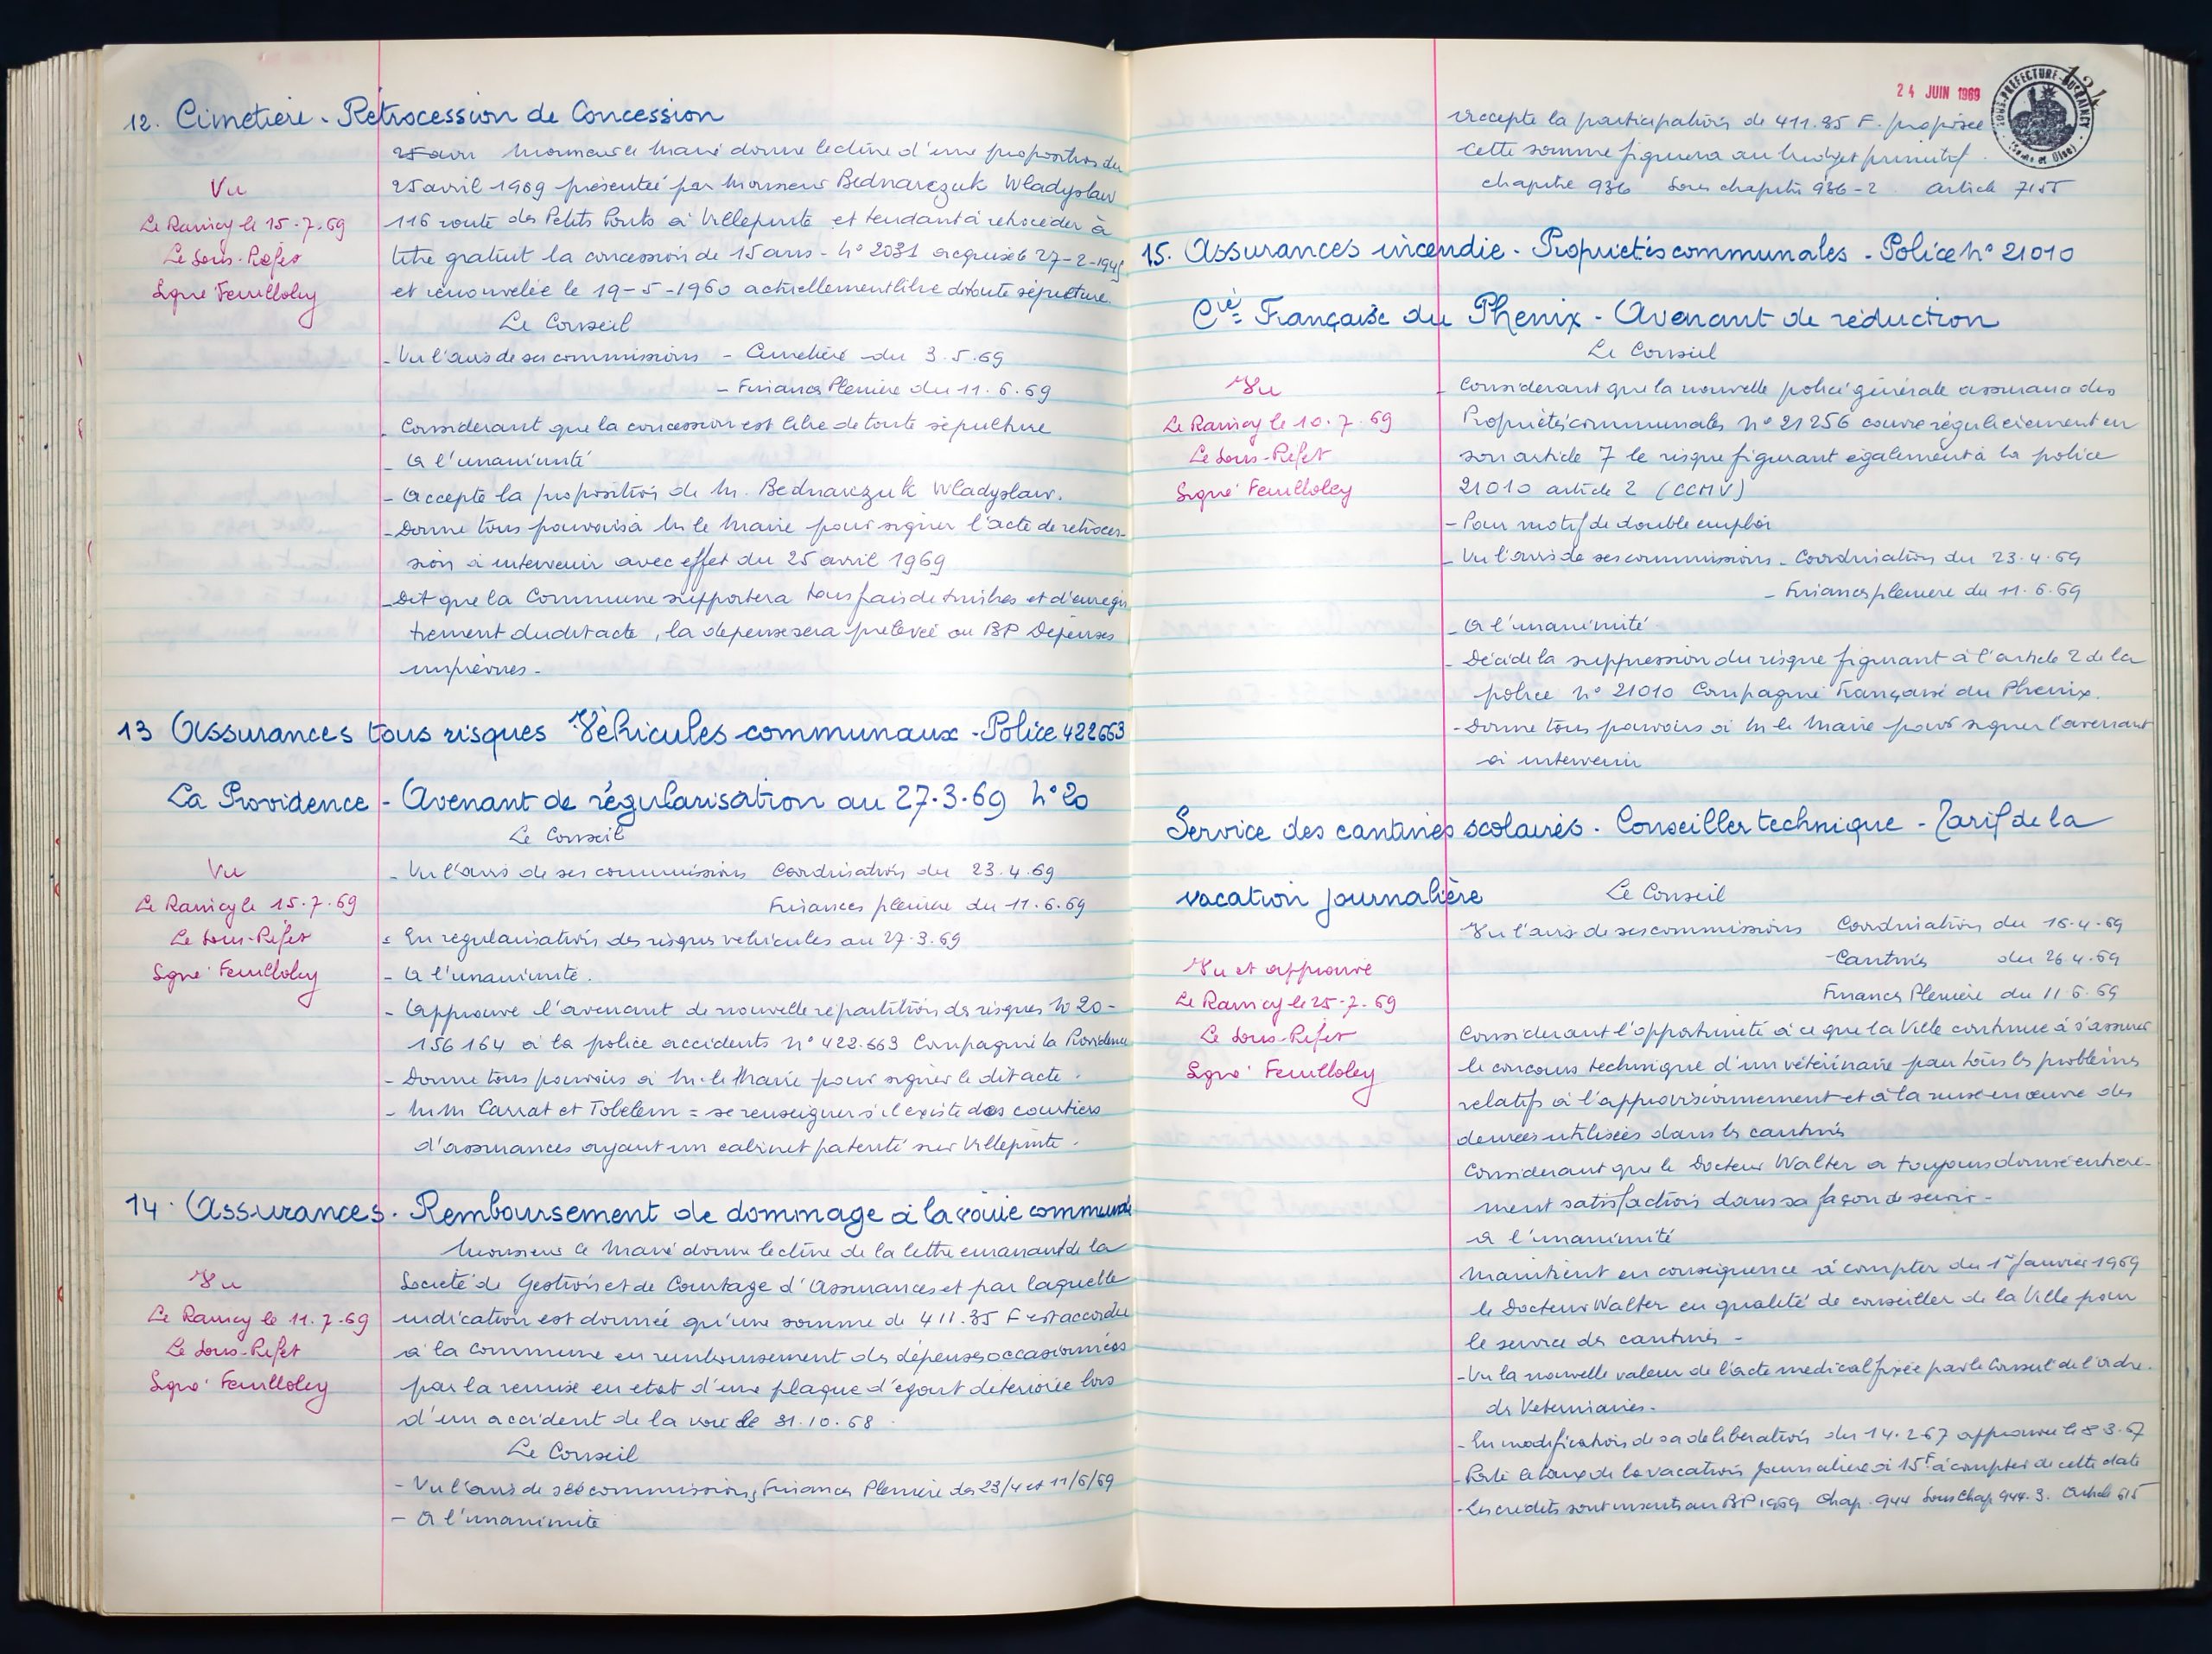 12. Cimetière - Rétrocession de Concession
Monsieur le Maire donne lecture d'une proposition du
Vu
25 avril 1969 présentée par Monsieur Bednarczuk Wladyslaw
Le Raincy le 15.7.69
116 route des Petits Ponts à Villepinte et tendant à rétrocéder à
Le Sous-Préfet
titre gratuit la concession de 15 ans - N° 2031 acquise le 27-2-1945
Signé Feuilloley
et renouvelée le 19-5-1960 actuellement libre de toute sépulture.
Le Conseil
- Vu l'avis de ses commissions - Cimetière du 3.5.69
- Finances Plenière du 11.6.69
- Considerant que la concession est libre de toute sépulture
- A l'unanimité
- Accepte la proposition de M. Bednarczuk Wladyslaw.
- Donne tous pouvoirs à M le Maire pour signer l'acte de retroces-
sion à intervenir avec effet du 25 avril 1969
- Dit que la Commune supportera tous frais de timbres et d'enregis
trement dudit acte, la dépense sera prélevée au BP Dépenses
imprévues -
13 Assurances tous risques Véhicules communaux - Police 422663
La Providence - Avenant de régularisation au 27.3.69 N° 20
Le Conseil
Vu
- Vu l'avis de ses commissions Coordination du 23.4.69
Le Raincy le 15.7.69
Finances plenière du 11.6.69
Le Sous-Préfet
- En regularisation des risques vehicules au 27.3.69
Signé Feuilloley
- A l'unanimité.
- Approuve l'avenant de nouvelle répartition des risques N° 20-
156 164 à la police accidents N° 422.663 Compagnie la Providence
- Donne tous pouvoirs à M. le Maire pour signer le dit acte.
- MM Carrat et Tobelem = se renseigner s'il existe des courtiers
d'assurances ayant un cabinet patenté sur Villepinte.
14. Assurances. Remboursement de dommage à la voirie communale
Monsieur le Maire donne lecture de la lettre emanant de la
Vu
Société de Gestion et de Courtage d'Assurances et par laquelle
Le Raincy le 11.7.69
indication est donnée qu'une somme de 411.35 F est accordée
Le Sous-Préfet
à la Commune en remboursement des dépenses occasionnées
Signé Feuilloley
par la remise en état d'une plaque d'égout détériorée lors
d'un accident de la voie le 31.10.68
Le Conseil
- Vu l'avis de ses commissions, Finances Plenière des 23/4 et 11/6/69
- A l'unanimité
24 JUIN 1969
SOUS-PRÉFECTURE DU RAINCY
(Seine et Oise)
accepte la participation de 411.35 F. proposée
cette somme figurera au budget primitif.
chapitre 936 Sous chapitre 936-2. Article 7155
15. Assurances incendie - Propriétés communales - Police N° 21010
Cie Française du Phenix - Avenant de réduction
Le Conseil
Vu
- Considerant que la nouvelle police générale assurance des
Le Raincy le 10.7.69
Propriétés communales N° 21256 couvre régulièrement en
Le Sous-Préfet
son article 7 le risque figurant également à la police
Signé Feuilloley
21010 article 2 (CCMV)
- Pour motif de double emploi
- Vu l'avis de ses commissions - Coordination du 23.4.69
- Finances pleniere du 11.6.69
- A l'unanimité
- Décide la suppression du risque figurant à l'article 2 de la
police N° 21010 Compagnie Française du Phenix.
- Donne tous pouvoirs à M le Maire pour signer l'avenant
à intervenir
Service des cantines scolaires. Conseiller technique - Tarif de la
vacation journalière Le Conseil
Vu l'avis de ses commissions Coordination du 16.4.69
- Cantines du 26.4.69
Vu et approuvé
Finances Plenière du 11.6.69
Le Raincy le 25.7.69
Considerant l'opportunité à ce que la Ville continue à s'assurer
Le Sous-Préfet
le concours technique d'un vétérinaire pour tous les problèmes
Signé Feuilloley
relatifs à l'approvisionnement et à la mise en œuvre des
denrées utilisées dans les cantines
Considerant que le Docteur Walter a toujours donné entière-
ment satisfaction dans sa façon de servir -
A l'unanimité
Maintient en conséquence à compter du 1er Janvier 1969
le Docteur Walter en qualité de conseiller de la Ville pour
le service des cantines -
- Vu la nouvelle valeur de l'acte medical fixée par le Conseil de l'ordre
des Veterinaires -
- En modification de sa deliberation du 14.2.67 approuvée le 8.3.67
- Porte le taux de la vacation journalière à 15F à compter de cette date
- Les credits sont inscrits au BP 1969 Chap. 944 Sous Chap 944.3. Article 615